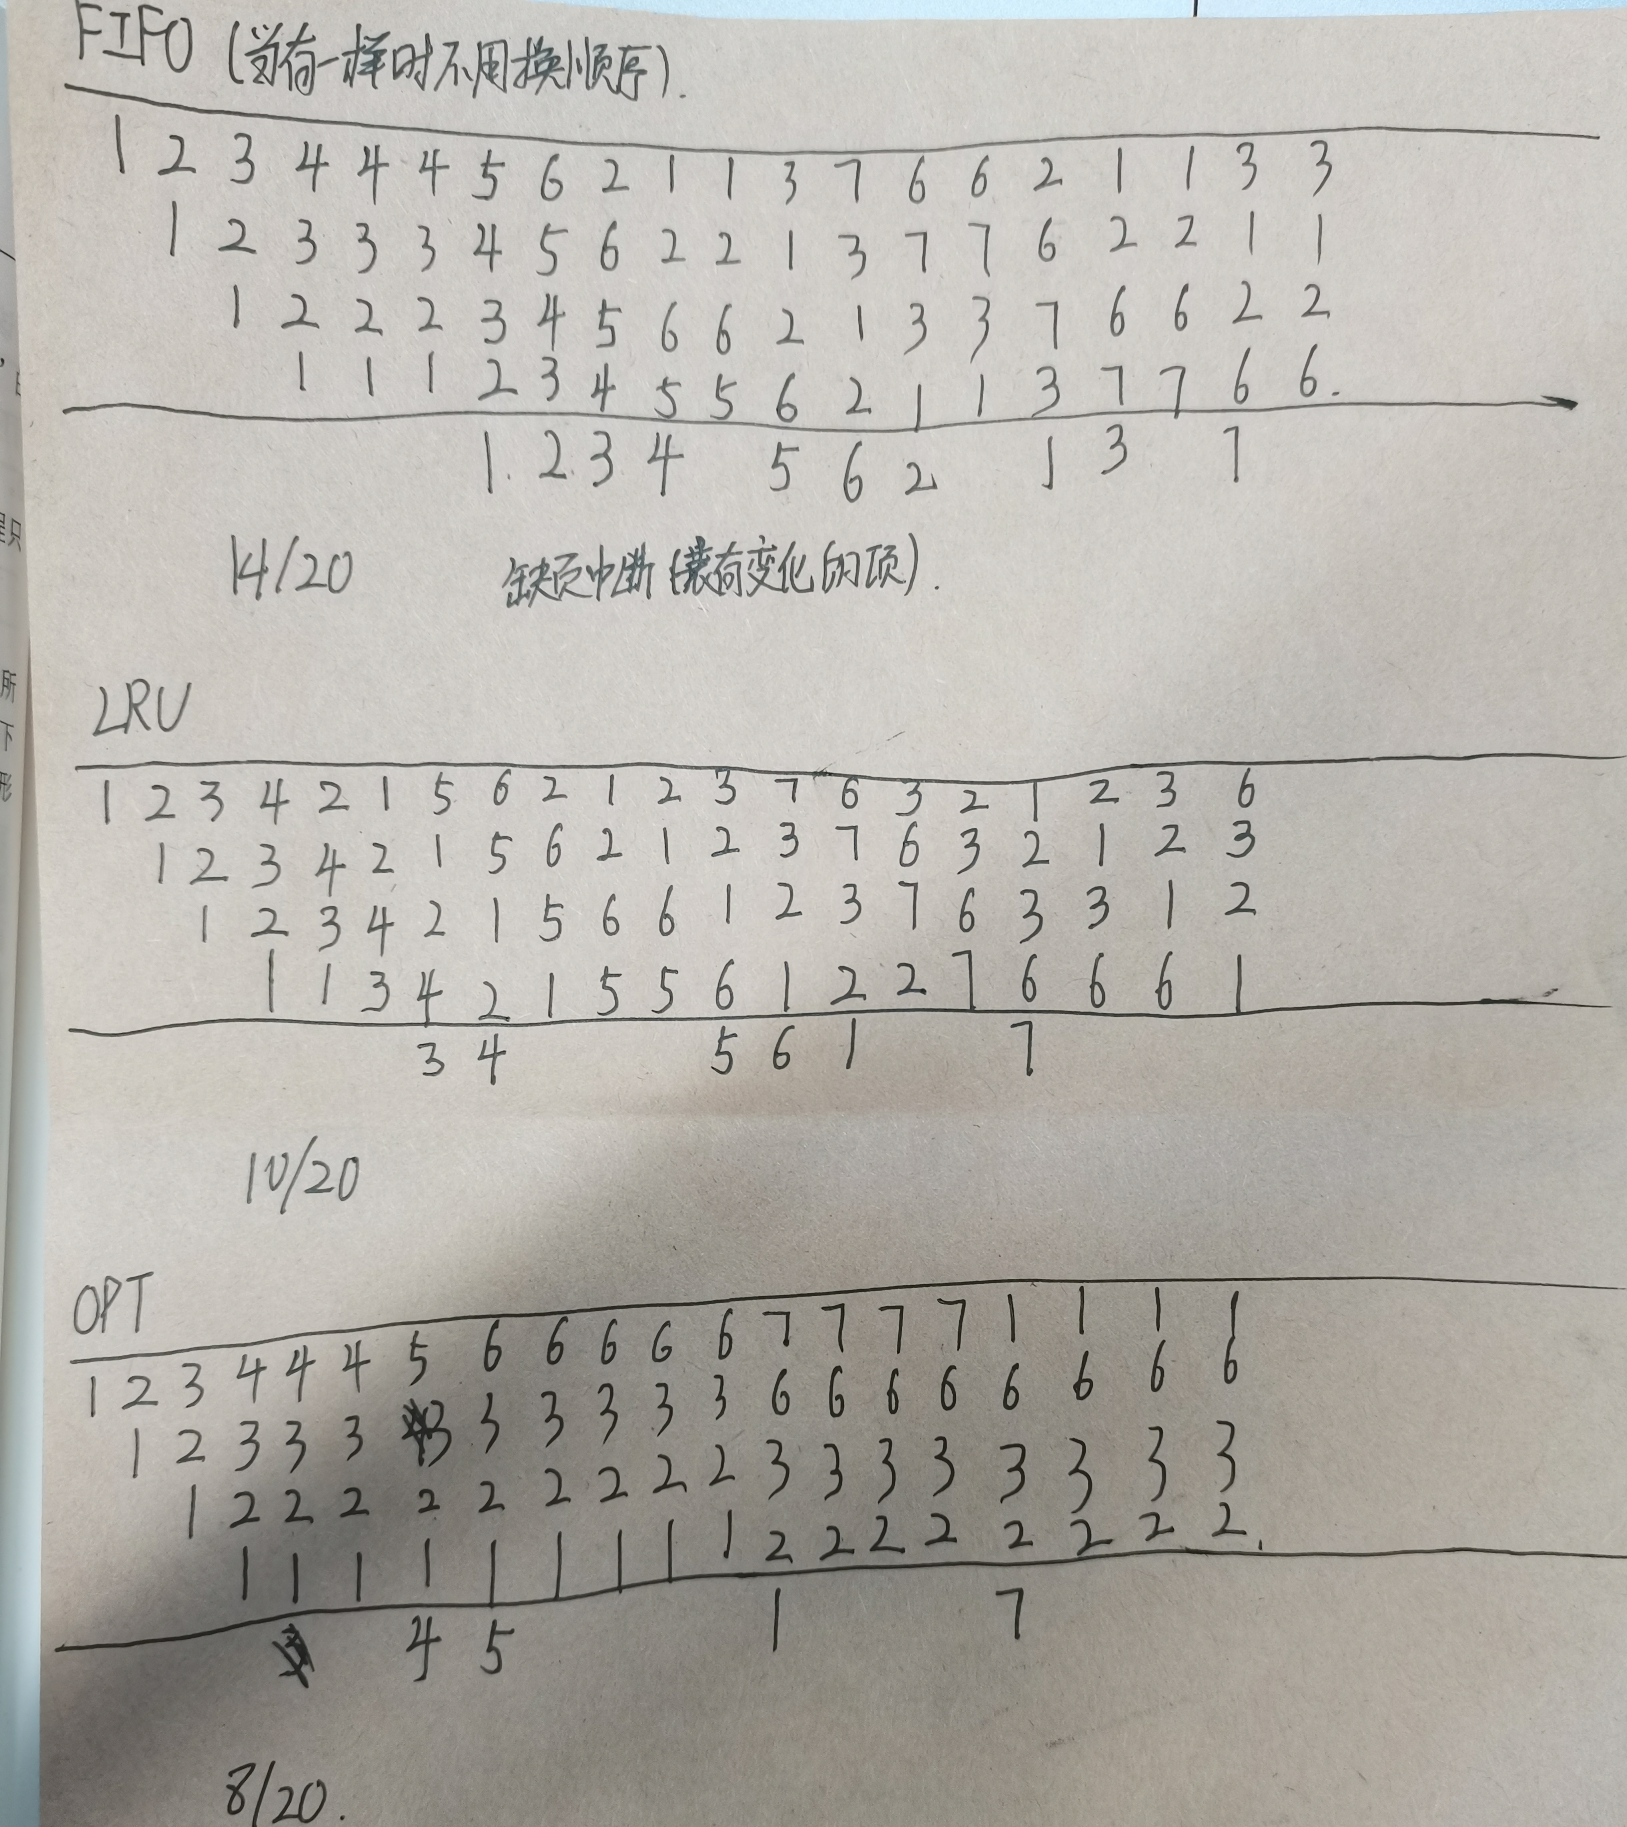 FIFO (当有一样时不用换顺序).
1 2 3 4 4 4 5 6 2 1 1 3 7 6 6 2 1 1 3 3
1 2 3 3 3 4 5 6 2 2 1 3 7 7 6 2 2 1 1
1 2 2 2 3 4 5 6 6 2 1 3 3 7 6 6 2 2
1 1 1 2 3 4 5 5 6 2 1 1 3 7 7 6 6.
1. 2. 3 4 5 6 2 1 3 7
14/20 缺页中断(表有变化的项).
LRU
1 2 3 4 2 1 5 6 2 1 2 3 7 6 3 2 1 2 3 6
1 2 3 4 2 1 5 6 2 1 2 3 7 6 3 2 1 2 3
1 2 3 4 2 1 5 6 6 1 2 3 7 6 3 3 1 2
1 1 3 4 2 1 5 5 6 1 2 2 7 6 6 6 1
3 4 5 6 1 7
10/20
OPT
1 2 3 4 4 4 5 6 6 6 6 6 7 7 7 7 1 1 1 1
1 2 3 3 3 3 3 3 3 3 3 6 6 6 6 6 6 6 6
1 2 2 2 2 2 2 2 2 2 3 3 3 3 3 3 3 3
1 1 1 1 1 1 1 1 1 2 2 2 2 2 2 2 2.
4 5 1 7
8/20.
所
下
形